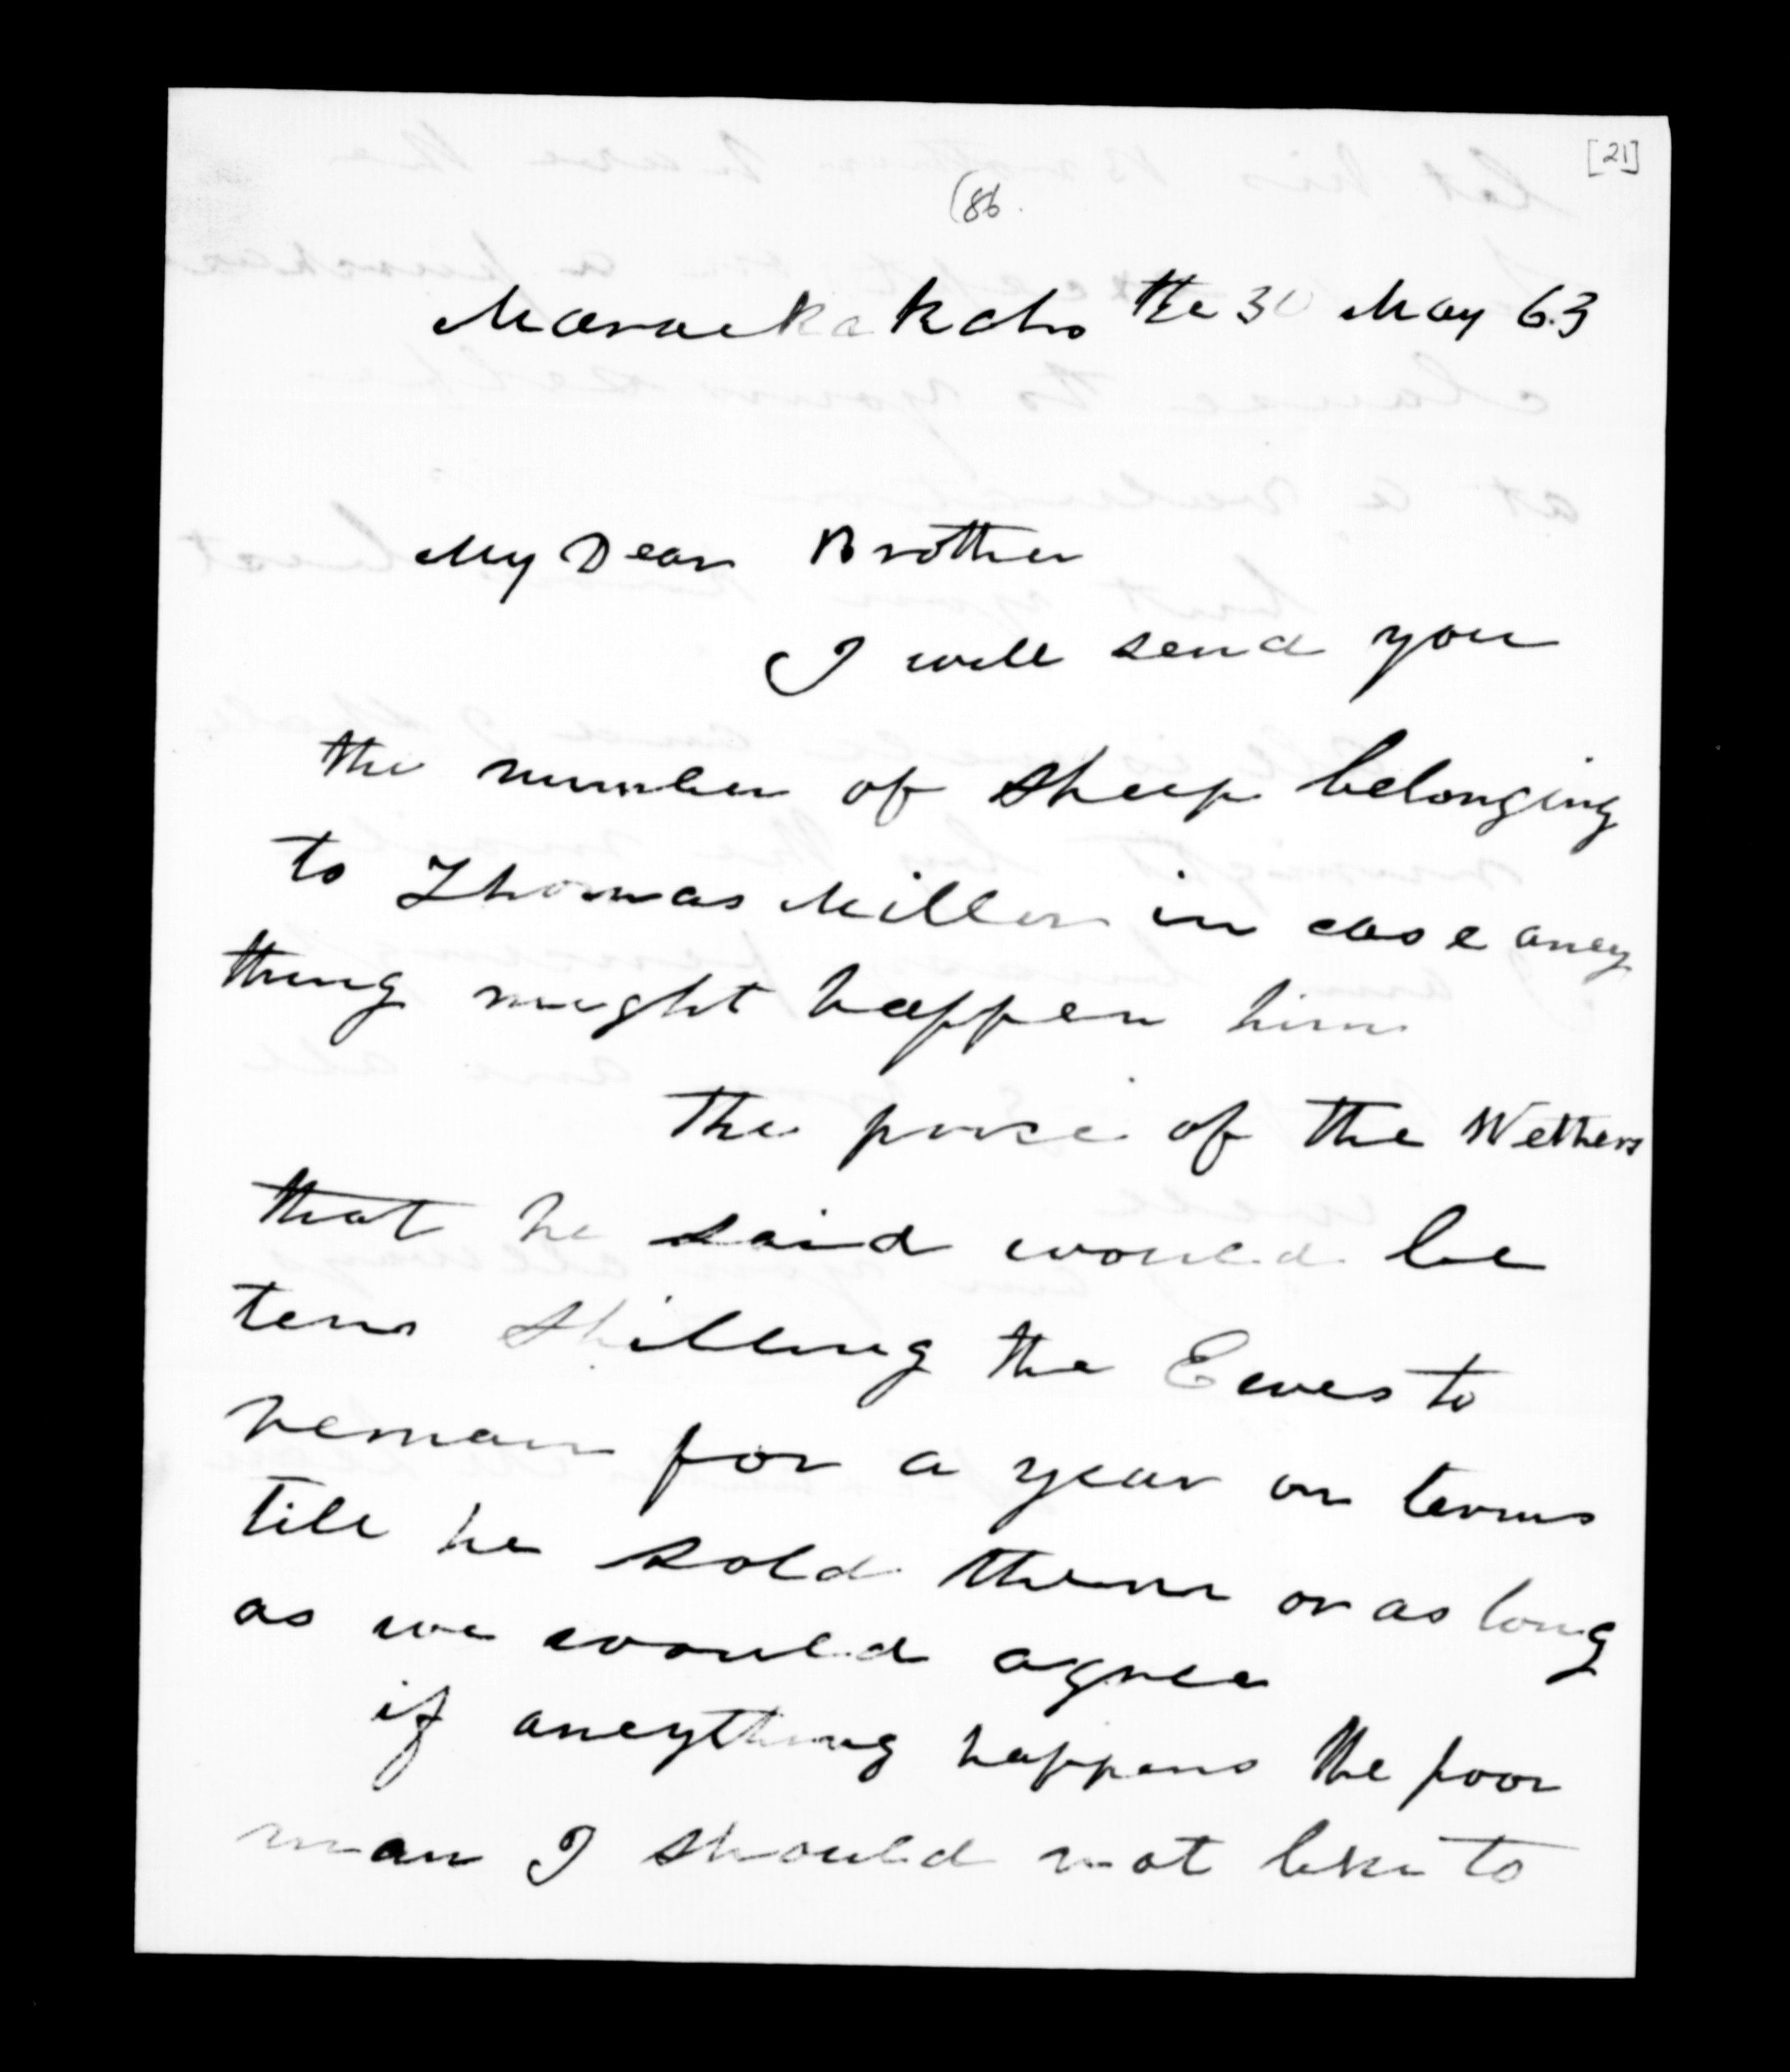 [21]
(86.
Maraekakaho the 30 May 63
My Dear Brother
I will send you
the number of sheep belonging
to Thomas Miller in case aney
thing might happen him
The price of the Wethers
that he said would be
tenn Shilling the Eewes to
remain for a year on terms
till he sold them or as long
as we would agree
if aneything happens the poor
man I should not like to